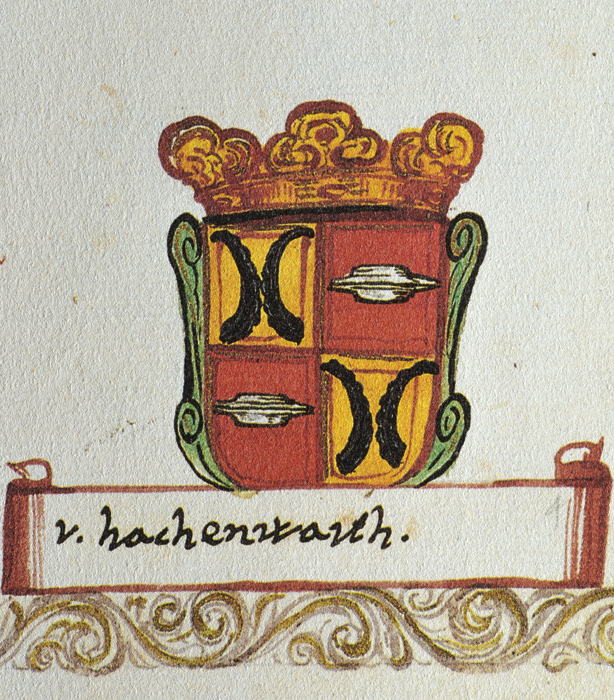 v. hachenwarth.